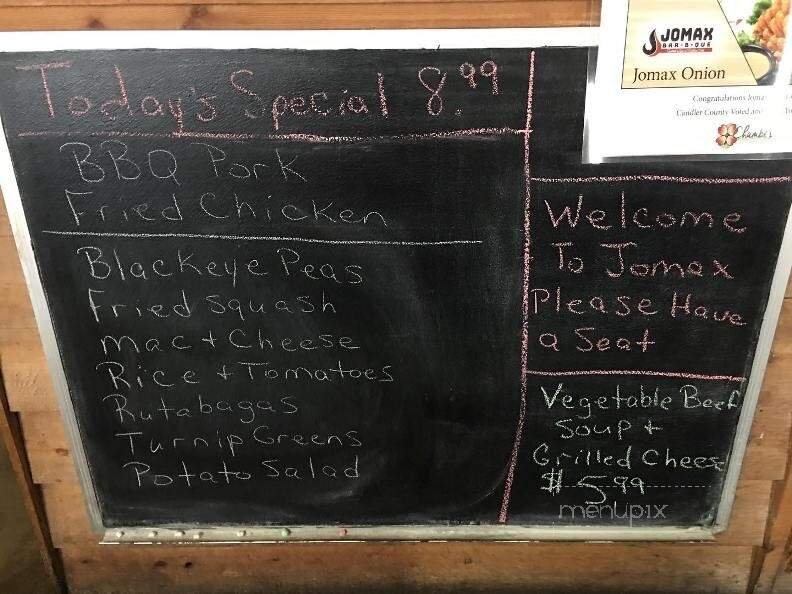 Today's Special 8.99
BBQ Pork
Fried Chicken
Blackeye Peas
Fried Squash
Mac + Cheese
Rice + Tomatoes
Rutabagas
Turnip Greens
Potato Salad
JOMAX
BAR-B-QUE
Jomax Onion
Congratulations Joma
Candler County Voted
Chamber
Welcome
To Jomax
Please Have
a Seat
Vegetable Beef
Soup +
Grilled Chees
$ 5.99
menupix